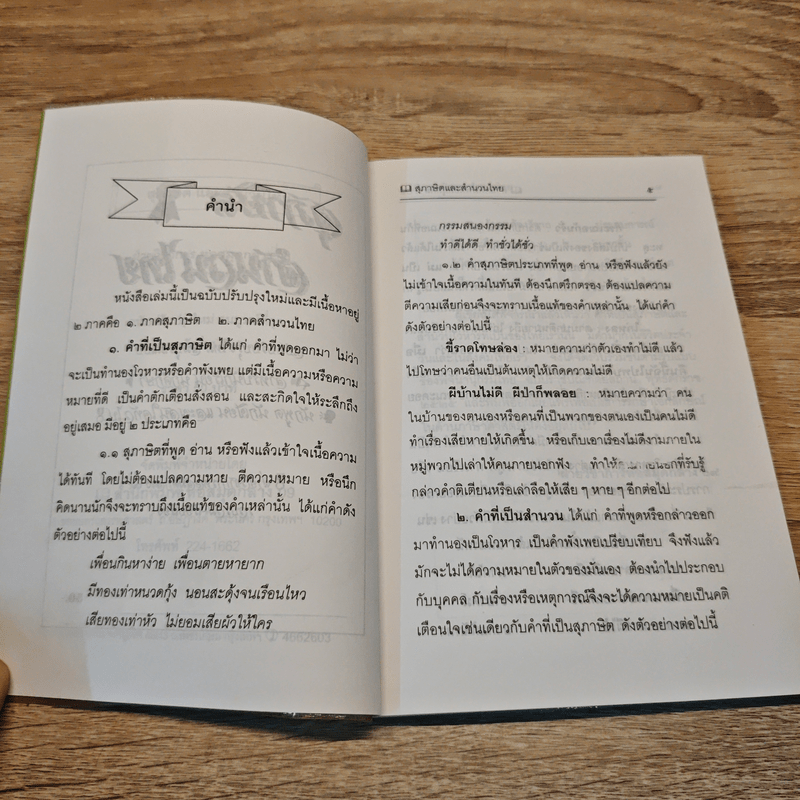 คำนำ
หนังสือเล่มนี้เป็นฉบับปรับปรุงใหม่และมีเนื้อหาอยู่
๒ ภาคคือ ๑. ภาคสุภาษิต ๒. ภาคสำนวนไทย
๑. คำที่เป็นสุภาษิต ได้แก่ คำที่พูดออกมา ไม่ว่า
จะเป็นทำนองโวหารหรือคำพังเพย แต่มีเนื้อความหรือความ
หมายที่ดี เป็นคำตักเตือนสั่งสอน และสะกิดใจให้ระลึกถึง
อยู่เสมอ มีอยู่ ๒ ประเภทคือ
๑.๑ สุภาษิตที่พูด อ่าน หรือฟังแล้วเข้าใจเนื้อความ
ได้ทันที โดยไม่ต้องแปลความหมาย ตีความหมาย หรือนึก
คิดนานนักจึงจะทราบถึงเนื้อแท้ของคำเหล่านั้น ได้แก่คำดัง
ตัวอย่างต่อไปนี้
เพื่อนกินหาง่าย เพื่อนตายหายาก
มีทองเท่าหนวดกุ้ง นอนสะดุ้งจนเรือนไหว
เสียทองเท่าหัว ไม่ยอมเสียผัวให้ใคร
สุภาษิตและสำนวนไทย ๕
กรรมสนองกรรม
ทำดีได้ดี ทำชั่วได้ชั่ว
๑.๒ คำสุภาษิตประเภทที่พูด อ่าน หรือฟังแล้วยัง
ไม่เข้าใจเนื้อความในทันที ต้องนึกตรึกตรอง ต้องแปลความ
ตีความเสียก่อนจึงจะทราบเนื้อแท้ของคำเหล่านั้น ได้แก่คำ
ดังตัวอย่างต่อไปนี้
ขี้ราดโทษล่อง : หมายความว่าตัวเองทำไม่ดี แล้ว
ไปโทษว่าคนอื่นเป็นต้นเหตุให้เกิดความไม่ดี
ผีบ้านไม่ดี ผีป่าก็พลอย : หมายความว่า คน
ในบ้านของตนเองหรือคนที่เป็นพวกของตนเองเป็นคนไม่ดี
ทำเรื่องเสียหายให้เกิดขึ้น หรือเก็บเอาเรื่องไม่ดีงามภายใน
หมู่พวกไปเล่าให้คนภายนอกฟัง ทำให้ ที่รับรู้
กล่าวคำติเตียนหรือเล่าลือให้เสีย ๆ หาย ๆ อีกต่อไป
๒. คำที่เป็นสำนวน ได้แก่ คำที่พูดหรือกล่าวออก
มาทำนองเป็นโวหาร เป็นคำพังเพยเปรียบเทียบ จึงฟังแล้ว
มักจะไม่ได้ความหมายในตัวของมันเอง ต้องนำไปประกอบ
กับบุคคล กับเรื่องหรือเหตุการณ์จึงจะได้ความหมายเป็นคติ
เตือนใจเช่นเดียวกับคำที่เป็นสุภาษิต ดังตัวอย่างต่อไปนี้